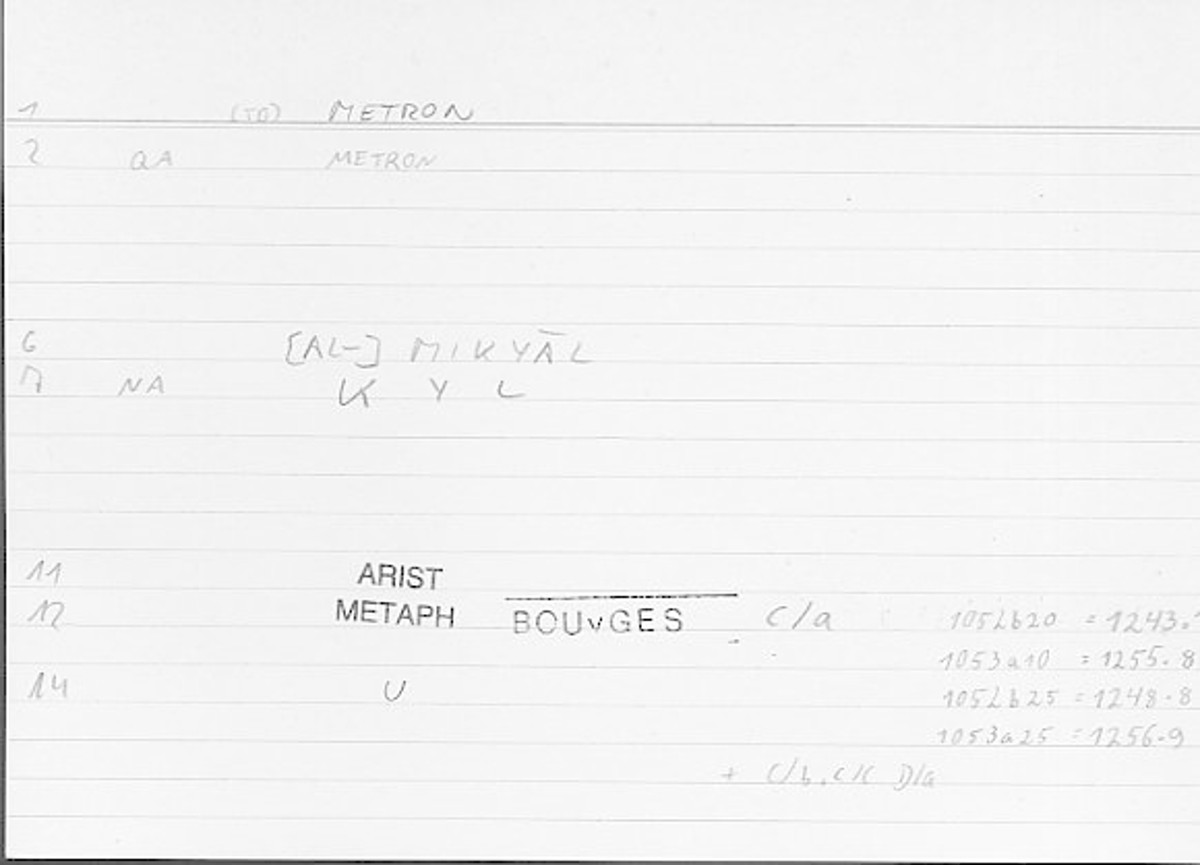 1 (TO) METRON
2 QA METRON
6 [AL-] MIKYĀL
7 NA K Y L
11 ARIST
12 METAPH BOUvGES C/a 1052b20 = 1243.
1053a10 = 1255.8
14 U 1052b25 = 1248.8
1053a25 = 1256.9
+ C/b, C/c D/a